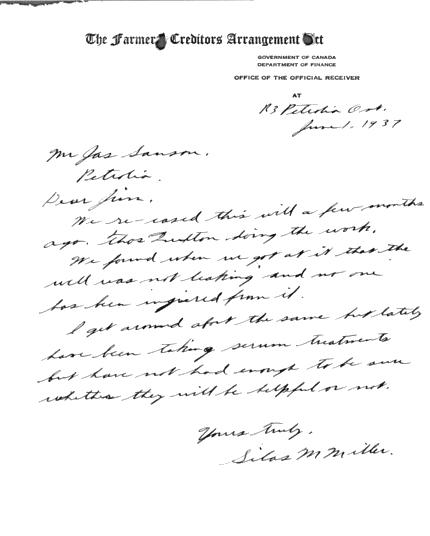 The Farmers Creditors Arrangement Act
GOVERNMENT OF CANADA
DEPARTMENT OF FINANCE
OFFICE OF THE OFFICIAL RECEIVER
AT
R3 Petrolia Ont.
June 1. 1937
Mr Jas Sanson.
Petrolia.
Dear Jim.
We re-cased this well a few months
ago. Thos doing the work.
We found when we got at it that the
well was not leaking and no one
has been ingiered from it.
I get around abot the same but lately
have been taking serum treatments
but have not had enough to be sure
whether they will be helpful or not.
Yours truly.
Silas M Miller.